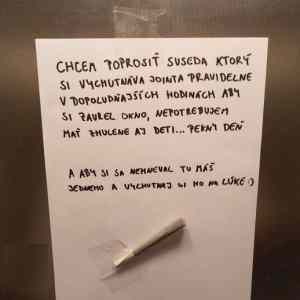 CHCEM POPROSIŤ SUSEDA KTORÝ
SI VYCHUTNÁVA JOINTA PRAVIDELNE
V DOPOLUDŇAJŠÍCH HODINÁCH ABY
SI ZAVREL OKNO, NEPOTREBUJEM
MAŤ ZHULENÉ AJ DETI... PEKNÝ DEŇ
A ABY SI SA NEHNEVAL TU MÁŠ
JEDNÉHO A VYCHUTNAJ SI HO NA LÚKE :)